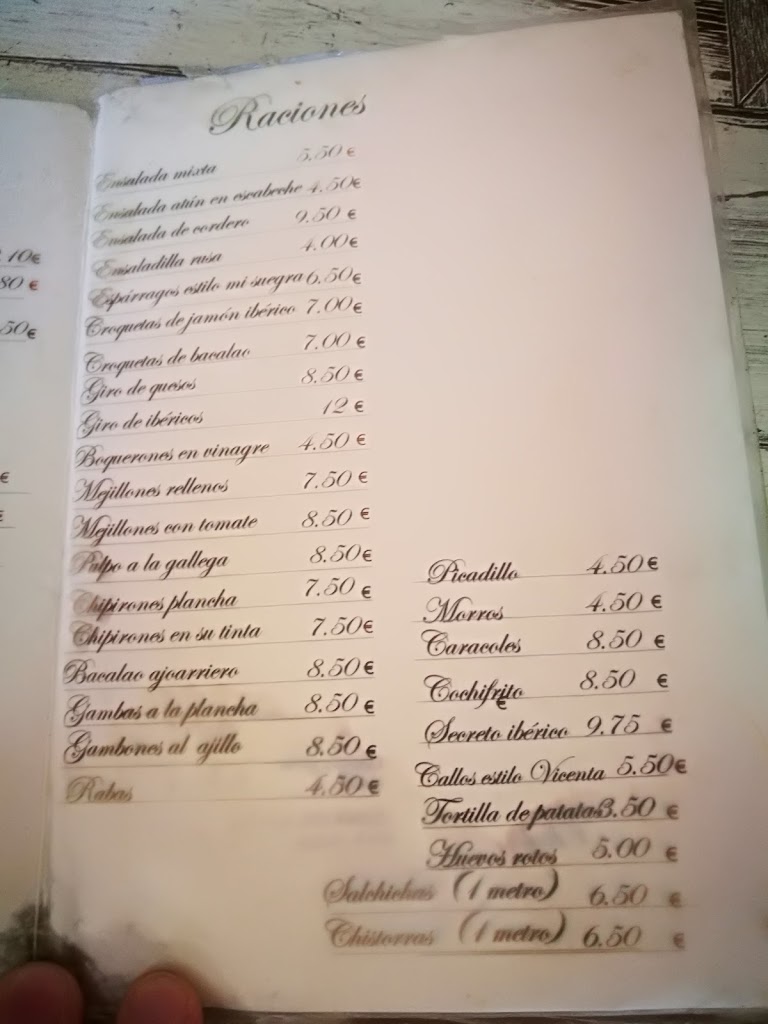 Raciones
Ensalada mixta 5.50 €
Ensalada atún en escabeche 4.50€
Ensalada de cordero 9.50 €
Ensaladilla rusa 4.00€
Espárragos estilo mi suegra 6.50€
Croquetas de jamón ibérico 7.00€
Croquetas de bacalao 7.00 €
Giro de quesos 8.50€
Giro de ibéricos 12 €
Boquerones en vinagre 4.50 €
Mejillones rellenos 7.50 €
Mejillones con tomate 8.50 €
Pulpo a la gallega 8.50€
Chipirones plancha 7.50 €
Chipirones en su tinta 7.50€
Bacalao ajoarriero 8.50€
Gambas a la plancha 8.50€
Gambones al ajillo 8.50 €
Rabas 4.50 €
Picadillo 4.50 €
Morros 4.50 €
Caracoles 8.50 €
Cochifrito 8.50 €
€
Secreto ibérico 9.75 €
Callos estilo Vicenta 5.50€
Tortilla de patatas 3.50 €
Huevos rotos 5.00 €
Salchichas (1 metro) 6.50 €
Chistorras (1 metro) 6.50 €
10€
80 €
50€
€
€